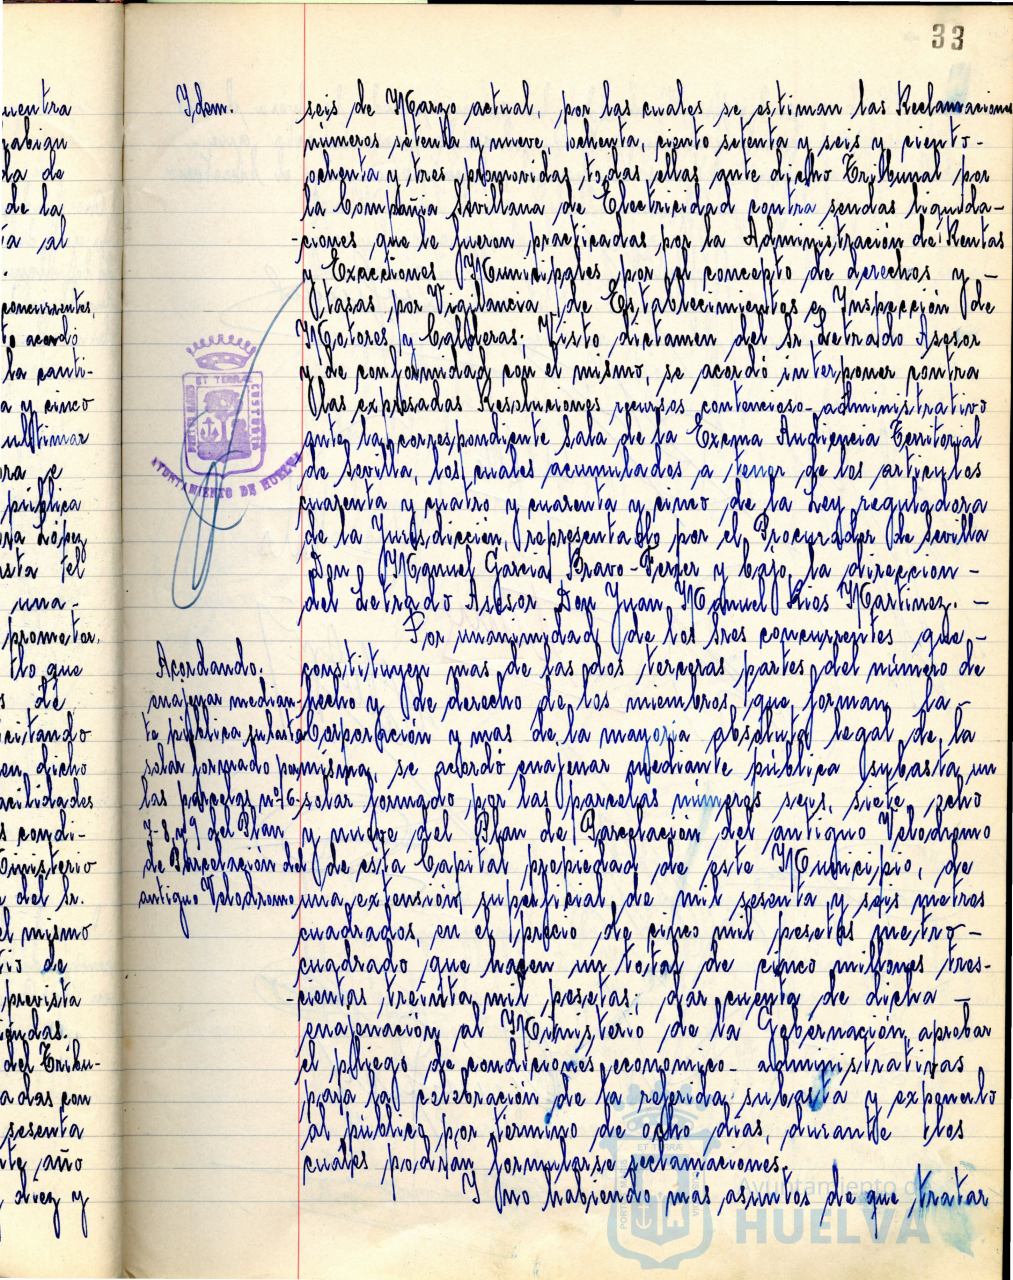 33
uentra
rabign
da de
de la
ía al
concurrentes,
to acordó
la canti-
a y cinco
ultimar
ra e
pública
ora López
sta el
una-
prometer,
tlo que
s de
citando
en dicho
acilidades
s condi-
Ministerio
del Sr.
el mismo
tio de
prevista
gudas.
del Tribu-
adas con
sesenta
nte año
diez y
Idem.
AYUNTAMIENTO DE HUELVA
Acordando:
enajenar median-
te pública subasta
solar formado por
las parcelas nº 6-
7-8 y 9 del Plan
de Parcelación del
antiguo Velodromo
seis de Marzo actual, por las cuales se estiman las Reclamaciones
números setenta y nueve, ochenta, ciento setenta y seis y ciento-
ochenta y tres promovidas todas ellas ante dicho Tribunal por
la Compañia Sevillana de Electricidad contra sendas liquida-
-ciones que le fueron practicadas por la Administración de Rentas
y Exacciones Municipales por el concepto de derechos y -
tasas por Vigilancia de Establecimientos e Inspección de
Motores y Calderas; Visto dictamen del Sr. Letrado Asesor
y de conformidad con el mismo, se acordó interponer contra
las expresadas Resoluciones recursos contencioso-administrativo
ante la correspondiente Sala de la Excma Audiencia Territorial
de Sevilla, los cuales acumulados a tenor de los articulos
cuarenta y cuatro y cuarenta y cinco de la Ley reguladora
de la Jurisdicción, representado por el Procurador de Sevilla
Don Manuel Garcia Bravo-Ferrer y bajo la direccion -
del Letrado Asesor Don Juan Manuel Rios Martinez. -
Por unanimidad de los Sres concurrentes que -
constituyen mas de las dos terceras partes del número de
hecho y de derecho de los miembros que forman la -
Corporación y mas de la mayoría absoluta legal de la
misma, se acordó enajenar mediante pública subasta un
solar formado por las parcelas números seis, siete, ocho
y nueve del Plan de Parcelación del antiguo Velodromo
de esta Capital propiedad de este Municipio, de
una extensión superficial de mil sesenta y seis metros
cuadrados, en el precio de cinco mil pesetas metro -
cuadrado que hacen un total de cinco millones tres-
-cientas treinta mil pesetas, dar cuenta de dicha -
enajenación al Ministerio de la Gobernación, aprobar
el pliego de condiciones economico-administrativas
para la celebración de la referida subasta y exponerlo
al público por término de ocho dias, durante los
cuales podrán formularse reclamaciones.
Y no habiendo más asuntos de que tratar
Ayuntamiento de
HUELVA